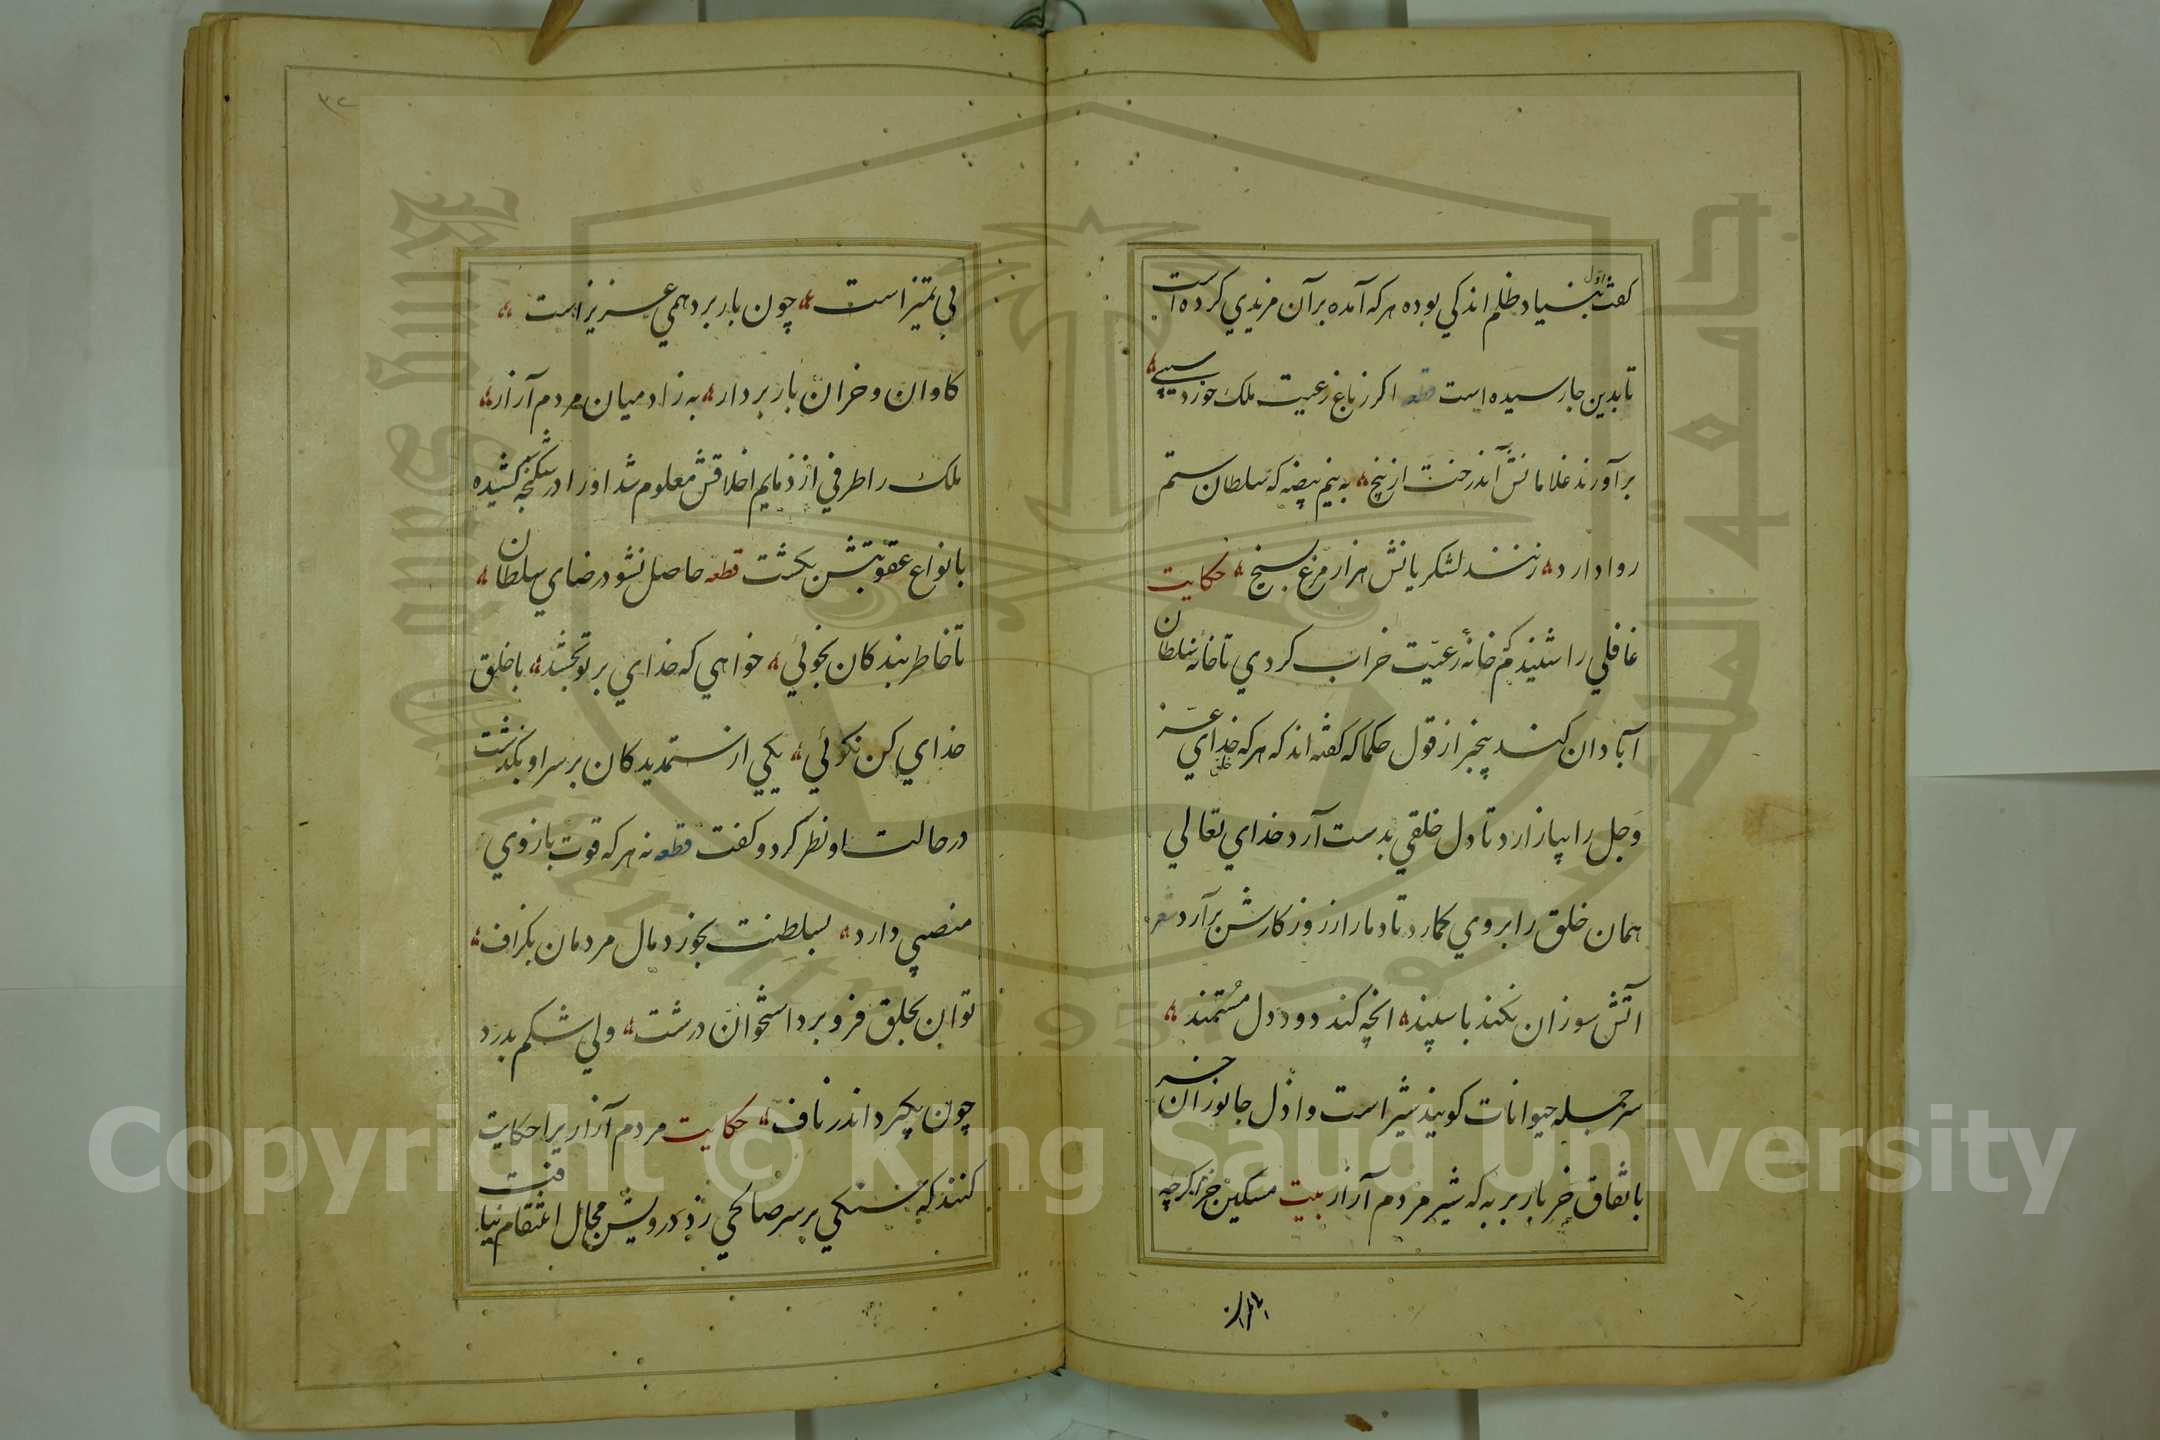 کفت اول بنیاد ظلم اندکي بوده هر که آمده برآن مزیدي کرده است
تا بدین جا رسیده است قطعه اکر ز باغ رعیت ملک خورد سیبي
برآورند غلامانش آن درخت از بیخ به نیم بیضه که سلطان ستم
روا دارد زنند لشکریانش هزار مرغ بسیخ حکایت
غافلي را شنیدم که خانهٔ رعیّت خراب کردي تا خانهٔ سلطان
آبادان کند بیخبر از قول حکما که کفته‌اند که هر که خداي عزّ
وَجل را بیازارد تا دل خلقي بدست آرد خداي تعالي
همان خلق را بروي کمارد تا دمار از روزکارش برآرد شعر
آتش سوزان نکند با سپند انچه کند دود دل مُستمند
سر جمله حیوانات کویند شیر است و اذل جانوران خر
باتفاق خر باربر به که شیر مردم آزار بیت مسکین خر اکرچه
بي تمیز است چون بار برد همي عزیز است
کاوان و خران بار بردار به ز ادمیان مردم آزار
ملک را طرفي از ذمایم اخلاقش معلوم شد او را در شکنجه کشیده
بانواع عقوبتش بکشت قطعه حاصل نشود رضاي سلطان
تا خاطر بندکان نجوئي خواهي که خداي بر تو بخشد با خلق
خداي کن نکوئي یکي از ستمدیدکان بر سر او بکذشت
در حالت او نظر کرد و کفت قطعه نه هر که قوّت بازوي
منصبي دارد بسلطنت بخورد مال مردمان بکزاف
توان بحلق فرو برد استخوان درشت ولي شکم بدرد
چون بگیرد اندر ناف حکایت مردم آزاریرا حکایت
کنند که سنکي بر سر صالحي زد درویش مجال انتقام نیافت
Copyright © King Saud University
King Saud University
جامعة الملك سعود
1957